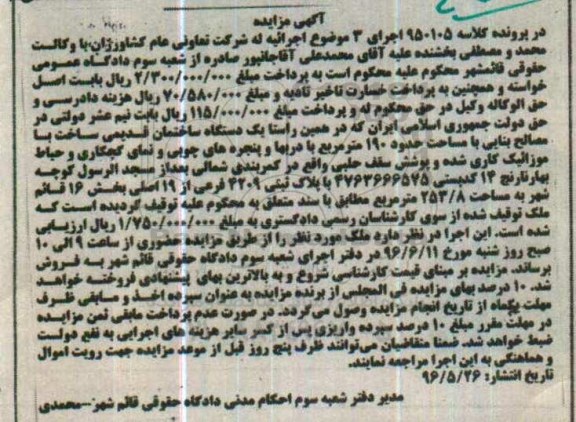 آگهی مزایده
در پرونده کلاسه ۹۵۰۱۰۵ اجرای ۳ موضوع اجرائیه له شرکت تعاونی عام کشاورزان با وکالت
محمد و مصطفی بخشنده علیه آقای محمدعلی آقاجانپور صادره از شعبه سوم دادگاه عمومی
حقوقی قائمشهر محکوم علیه محکوم است به پرداخت مبلغ ۲/۳۰۰/۰۰۰/۰۰۰ ریال بابت اصل
خواسته و همچنین به پرداخت خسارت تاخیر تادیه و مبلغ ۷۰/۵۸۰/۰۰۰ ریال هزینه دادرسی و
حق الوکاله وکیل در حق محکوم له و پرداخت مبلغ ۱۱۵/۰۰۰/۰۰۰ ریال بابت نیم عشر دولتی در
حق دولت جمهوری اسلامی ایران که در همین راستا یک دستگاه ساختمان قدیمی ساخت با
مصالح بنایی با مساحت حدود ۱۹۰ مترمربع با دربها و پنجره های چوبی و نمای گچکاری و حیاط
موزائیک کاری شده و پوشش سقف حلبی واقع در کمربندی شمالی بعداز مسجد الرسول کوچه
بهارنارنج ۱۴ کدپستی ۴۷۶۳۶۶۶۵۷۵ با پلاک ثبتی ۴۲۰۹ فرعی از ۱۹ اصلی بخش ۱۶ قائم
شهر به مساحت ۲۵۳/۸ مترمربع مطابق با سند متعلق به محکوم علیه توقیف گردیده است که
ملک توقیف شده از سوی کارشناسان رسمی دادگستری به مبلغ ۱/۷۵۰/۰۰۰/۰۰۰ ریال ارزیابی
شده است. این اجرا در نظر دارد ملک مورد نظر را از طریق مزایده حضوری از ساعت ۹ الی ۱۰
صبح روز شنبه مورخ ۹۶/۶/۱۱ در دفتر اجرای شعبه سوم دادگاه حقوقی قائم شهر به فروش
برساند. مزایده بر مبنای قیمت کارشناسی شروع و به بالاترین بهای پیشنهادی فروخته خواهد
شد. ۱۰ درصد بهای مزایده فی المجلس از برنده مزایده به عنوان سپرده اخذ و مابقی ظرف
مهلت یکماه از تاریخ انجام مزایده وصول می‌گردد. در صورت عدم پرداخت مابقی ثمن مزایده
در مهلت مقرر مبلغ ۱۰ درصد سپرده واریزی پس از کسر سایر هزینه های اجرایی به نفع دولت
ضبط خواهد شد. ضمنا متقاضیان می‌توانند ظرف پنج روز قبل از موعد مزایده جهت رویت اموال
و هماهنگی به این اجرا مراجعه نمایند.
تاریخ انتشار: ۹۶/۵/۲۶
مدیر دفتر شعبه سوم احکام مدنی دادگاه حقوقی قائم شهر---محمدی